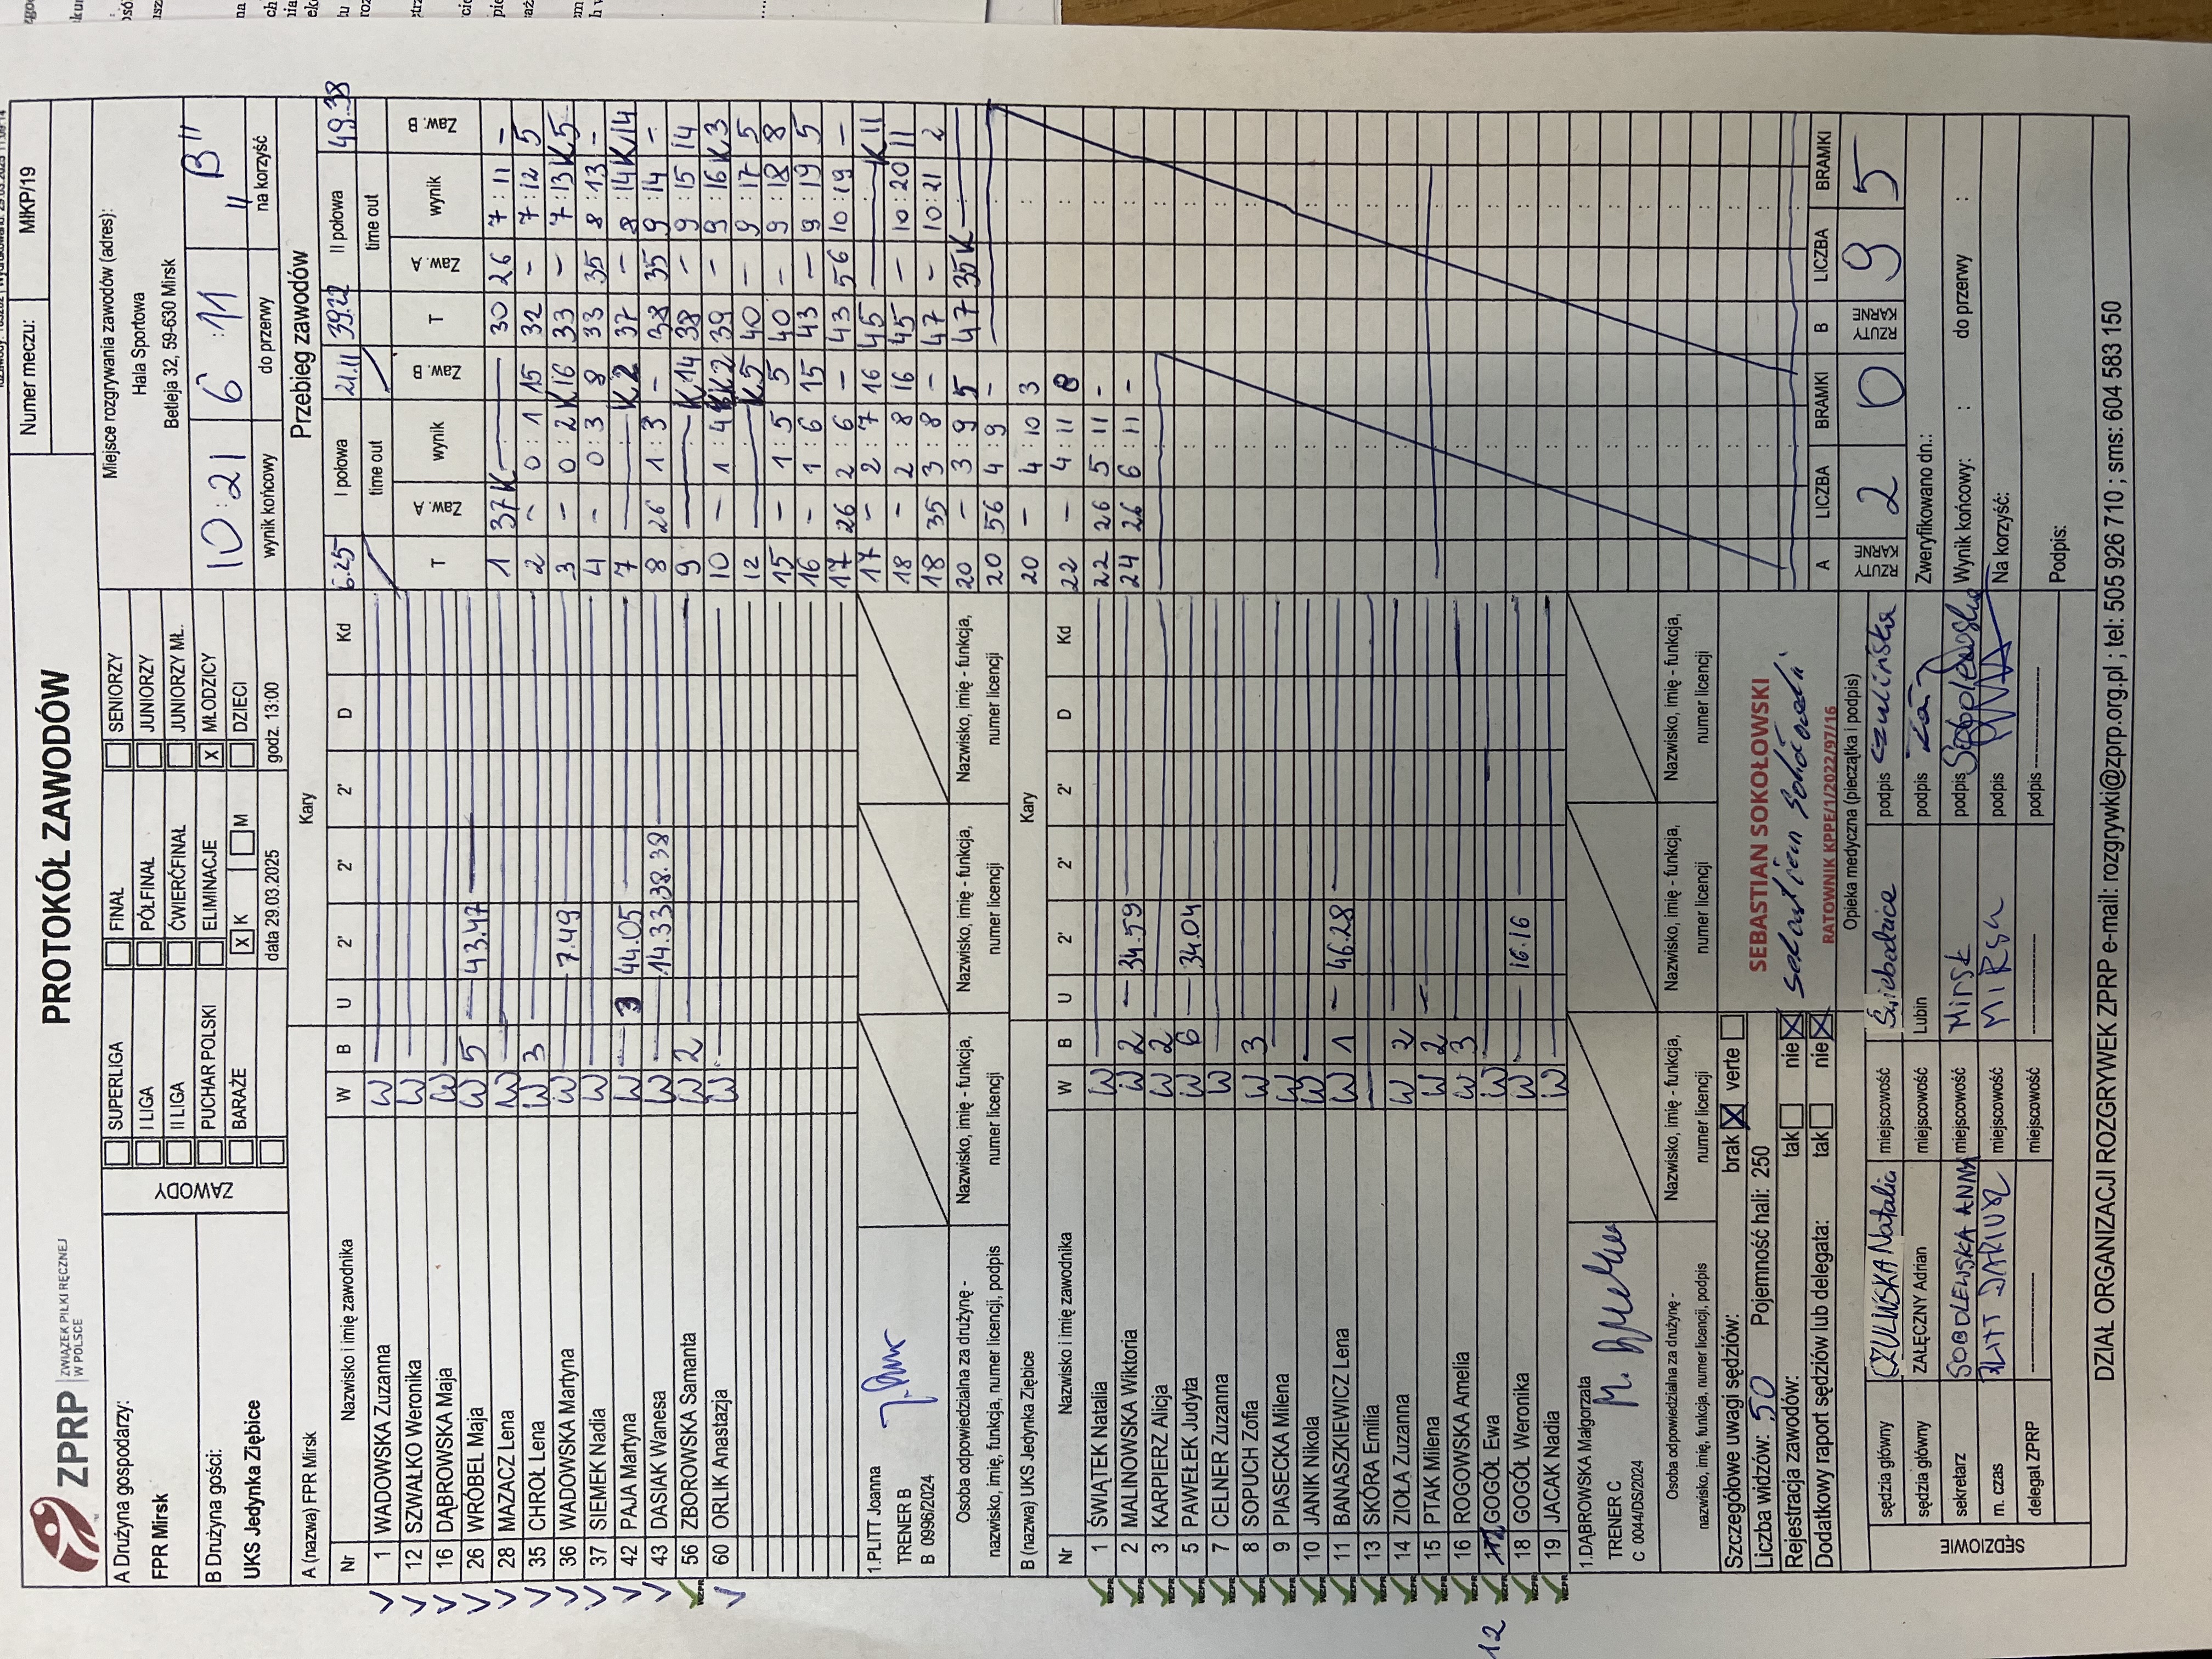 Numer meczu: MKP/19
ZPRP ZWIĄZEK PIŁKI RĘCZNEJ W POLSCE
PROTOKÓŁ ZAWODÓW
A Drużyna gospodarzy:
FPR Mirsk
B Drużyna gości:
UKS Jedynka Ziębice
ZAWODY
SUPERLIGA FINAŁ SENIORZY
I LIGA PÓŁFINAŁ JUNIORZY
II LIGA ĆWIERĆFINAŁ JUNIORZY MŁ.
PUCHAR POLSKI ELIMINACJE X MŁODZICY
BARAŻE X K M DZIECI
data 29.03.2025 godz. 13:00
Miejsce rozgrywania zawodów (adres):
Hala Sportowa
Betleja 32, 59-630 Mirsk
10:21 6:11 "B"
wynik końcowy do przerwy na korzyść
A (nazwa) FPR Mirsk Kary
Nr Nazwisko i imię zawodnika W B U 2' 2' 2' D Kd
1 WADOWSKA Zuzanna W
12 SZWAŁKO Weronika W
16 DĄBROWSKA Maja W
26 WRÓBEL Maja W 5 43.47
28 MAZACZ Lena W
35 CHROŁ Lena W 3
36 WADOWSKA Martyna W 7.49
37 SIEMEK Nadia W
42 PAJA Martyna W 3 44.05
43 DASIAK Wanesa W 14.33 38.38
56 ZBOROWSKA Samanta W 2
60 ORLIK Anastazja W
1.PLITT Joanna
TRENER B
B 0996/2024
Osoba odpowiedzialna za drużynę - nazwisko, imię, funkcja, numer licencji, podpis
Nazwisko, imię - funkcja, numer licencji
Nazwisko, imię - funkcja, numer licencji
Nazwisko, imię - funkcja, numer licencji
B (nazwa) UKS Jedynka Ziębice Kary
Nr Nazwisko i imię zawodnika W B U 2' 2' 2' D Kd
1 ŚWIĄTEK Natalia W
2 MALINOWSKA Wiktoria W 2 34.59
3 KARPIERZ Alicja W 2
5 PAWEŁEK Judyta W 6 34.04
7 CELNER Zuzanna W
8 SOPUCH Zofia W 3
9 PIASECKA Milena W
10 JANIK Nikola W
11 BANASZKIEWICZ Lena W 1 46.28
13 SKÓRA Emilia
14 ZIOŁA Zuzanna W 2
15 PTAK Milena W 2
16 ROGOWSKA Amelia W 3
12 GOGÓŁ Ewa W
18 GOGÓŁ Weronika W 16.16
19 JACAK Nadia W
1.DĄBROWSKA Małgorzata
TRENER C
C 0044/DS/2024
Osoba odpowiedzialna za drużynę - nazwisko, imię, funkcja, numer licencji, podpis
Nazwisko, imię - funkcja, numer licencji
Nazwisko, imię - funkcja, numer licencji
Nazwisko, imię - funkcja, numer licencji
Przebieg zawodów
6.25 I połowa 21.11 39.22 II połowa 49.38
time out time out
T Zaw. A wynik Zaw. B T Zaw. A wynik Zaw. B
1 37K 30 26 7:11 -
2 - 0:1 15 32 - 7:12 5
3 - 0:2 K16 33 - 7:13 K5
4 - 0:3 8 33 35 8:13 -
7 K2 37 - 8:14 K14
8 26 1:3 - 38 35 9:14 -
9 K14 38 - 9:15 14
10 - 1:4 K2 39 - 9:16 K3
12 K5 40 - 9:17 5
15 - 1:5 5 40 - 9:18 8
16 - 1:6 15 43 - 9:19 5
17 26 2:6 - 43 56 10:19 -
17 - 2:7 16 45 K11
18 - 2:8 16 45 - 10:20 11
18 35 3:8 - 47 - 10:21 2
20 - 3:9 5 47 35K
20 56 4:9 -
20 - 4:10 3
22 - 4:11 8
22 26 5:11 -
24 26 6:11 -
A RZUTY KARNE LICZBA 2 BRAMKI 0 B RZUTY KARNE LICZBA 9 BRAMKI 5
Szczegółowe uwagi sędziów: brak X verte
Liczba widzów: 50 Pojemność hali: 250
Rejestracja zawodów: tak nie X
Dodatkowy raport sędziów lub delegata: tak nie X
SEBASTIAN SOKOŁOWSKI
RATOWNIK KPPE/1/2022/97/16
Opieka medyczna (pieczątka i podpis)
SĘDZIOWIE
sędzia główny CZULIŃSKA Natalia miejscowość Świebodzice podpis Czulińska
sędzia główny ZAŁĘCZNY Adrian miejscowość Lubin podpis
sekretarz SOBOLEWSKA ANNA miejscowość Mirsk podpis Sobolewska
m. czas PLITT DARIUSZ miejscowość MIRSK podpis
delegat ZPRP miejscowość podpis
Zweryfikowano dn.:
Wynik końcowy: : do przerwy :
Na korzyść:
Podpis:
DZIAŁ ORGANIZACJI ROZGRYWEK ZPRP e-mail: rozgrywki@zprp.org.pl ; tel: 505 926 710 ; sms: 604 583 150